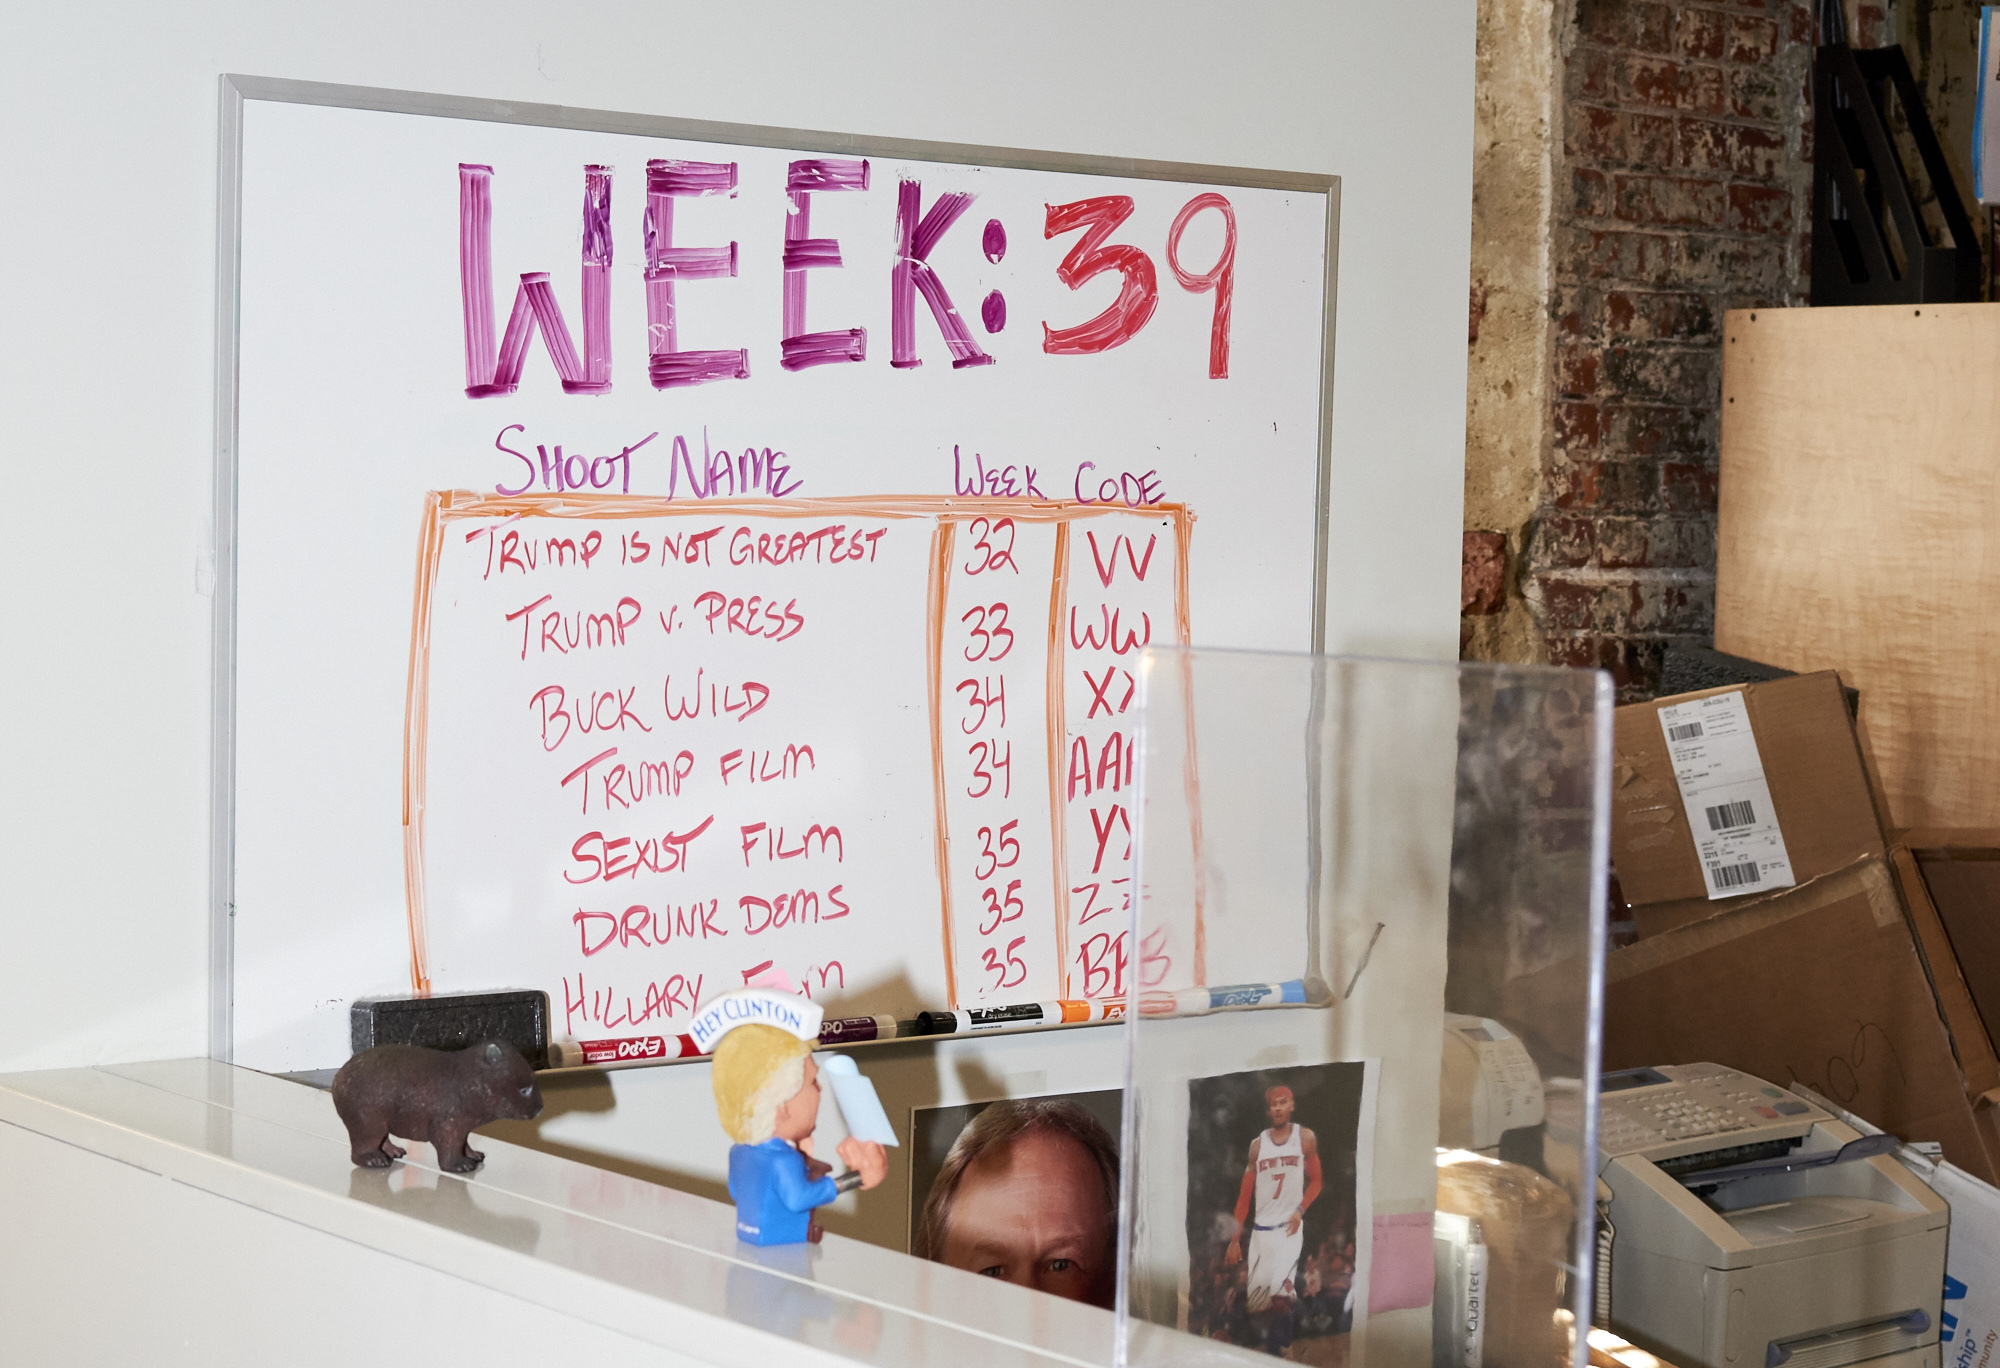 WEEK: 39
SHOOT NAME WEEK CODE
TRUMP IS NOT GREATEST 32 VV
TRUMP V. PRESS 33 WW
BUCK WILD 34 XX
TRUMP FILM 34 AAA
SEXIST FILM 35 YY
DRUNK DEMS 35 ZZ
HILLARY FILM 35 BBB
EXPO
low odor
HEY CLINTON
EXPO
EXPO
NEW YORK
7
Quartet